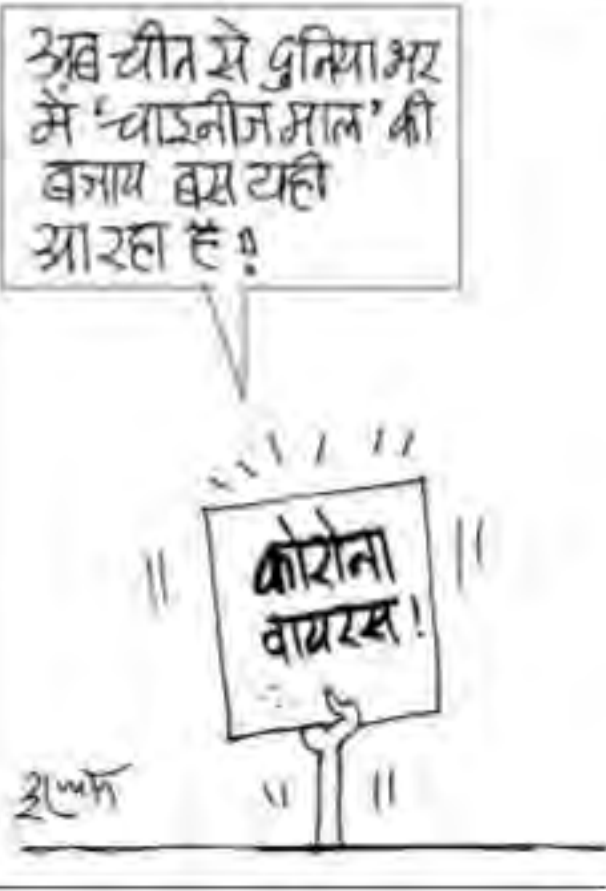 अब चीन से दुनिया भर
में 'चाइनीज माल' की
बजाय बस यही
आ रहा है!
कोरोना
वायरस!